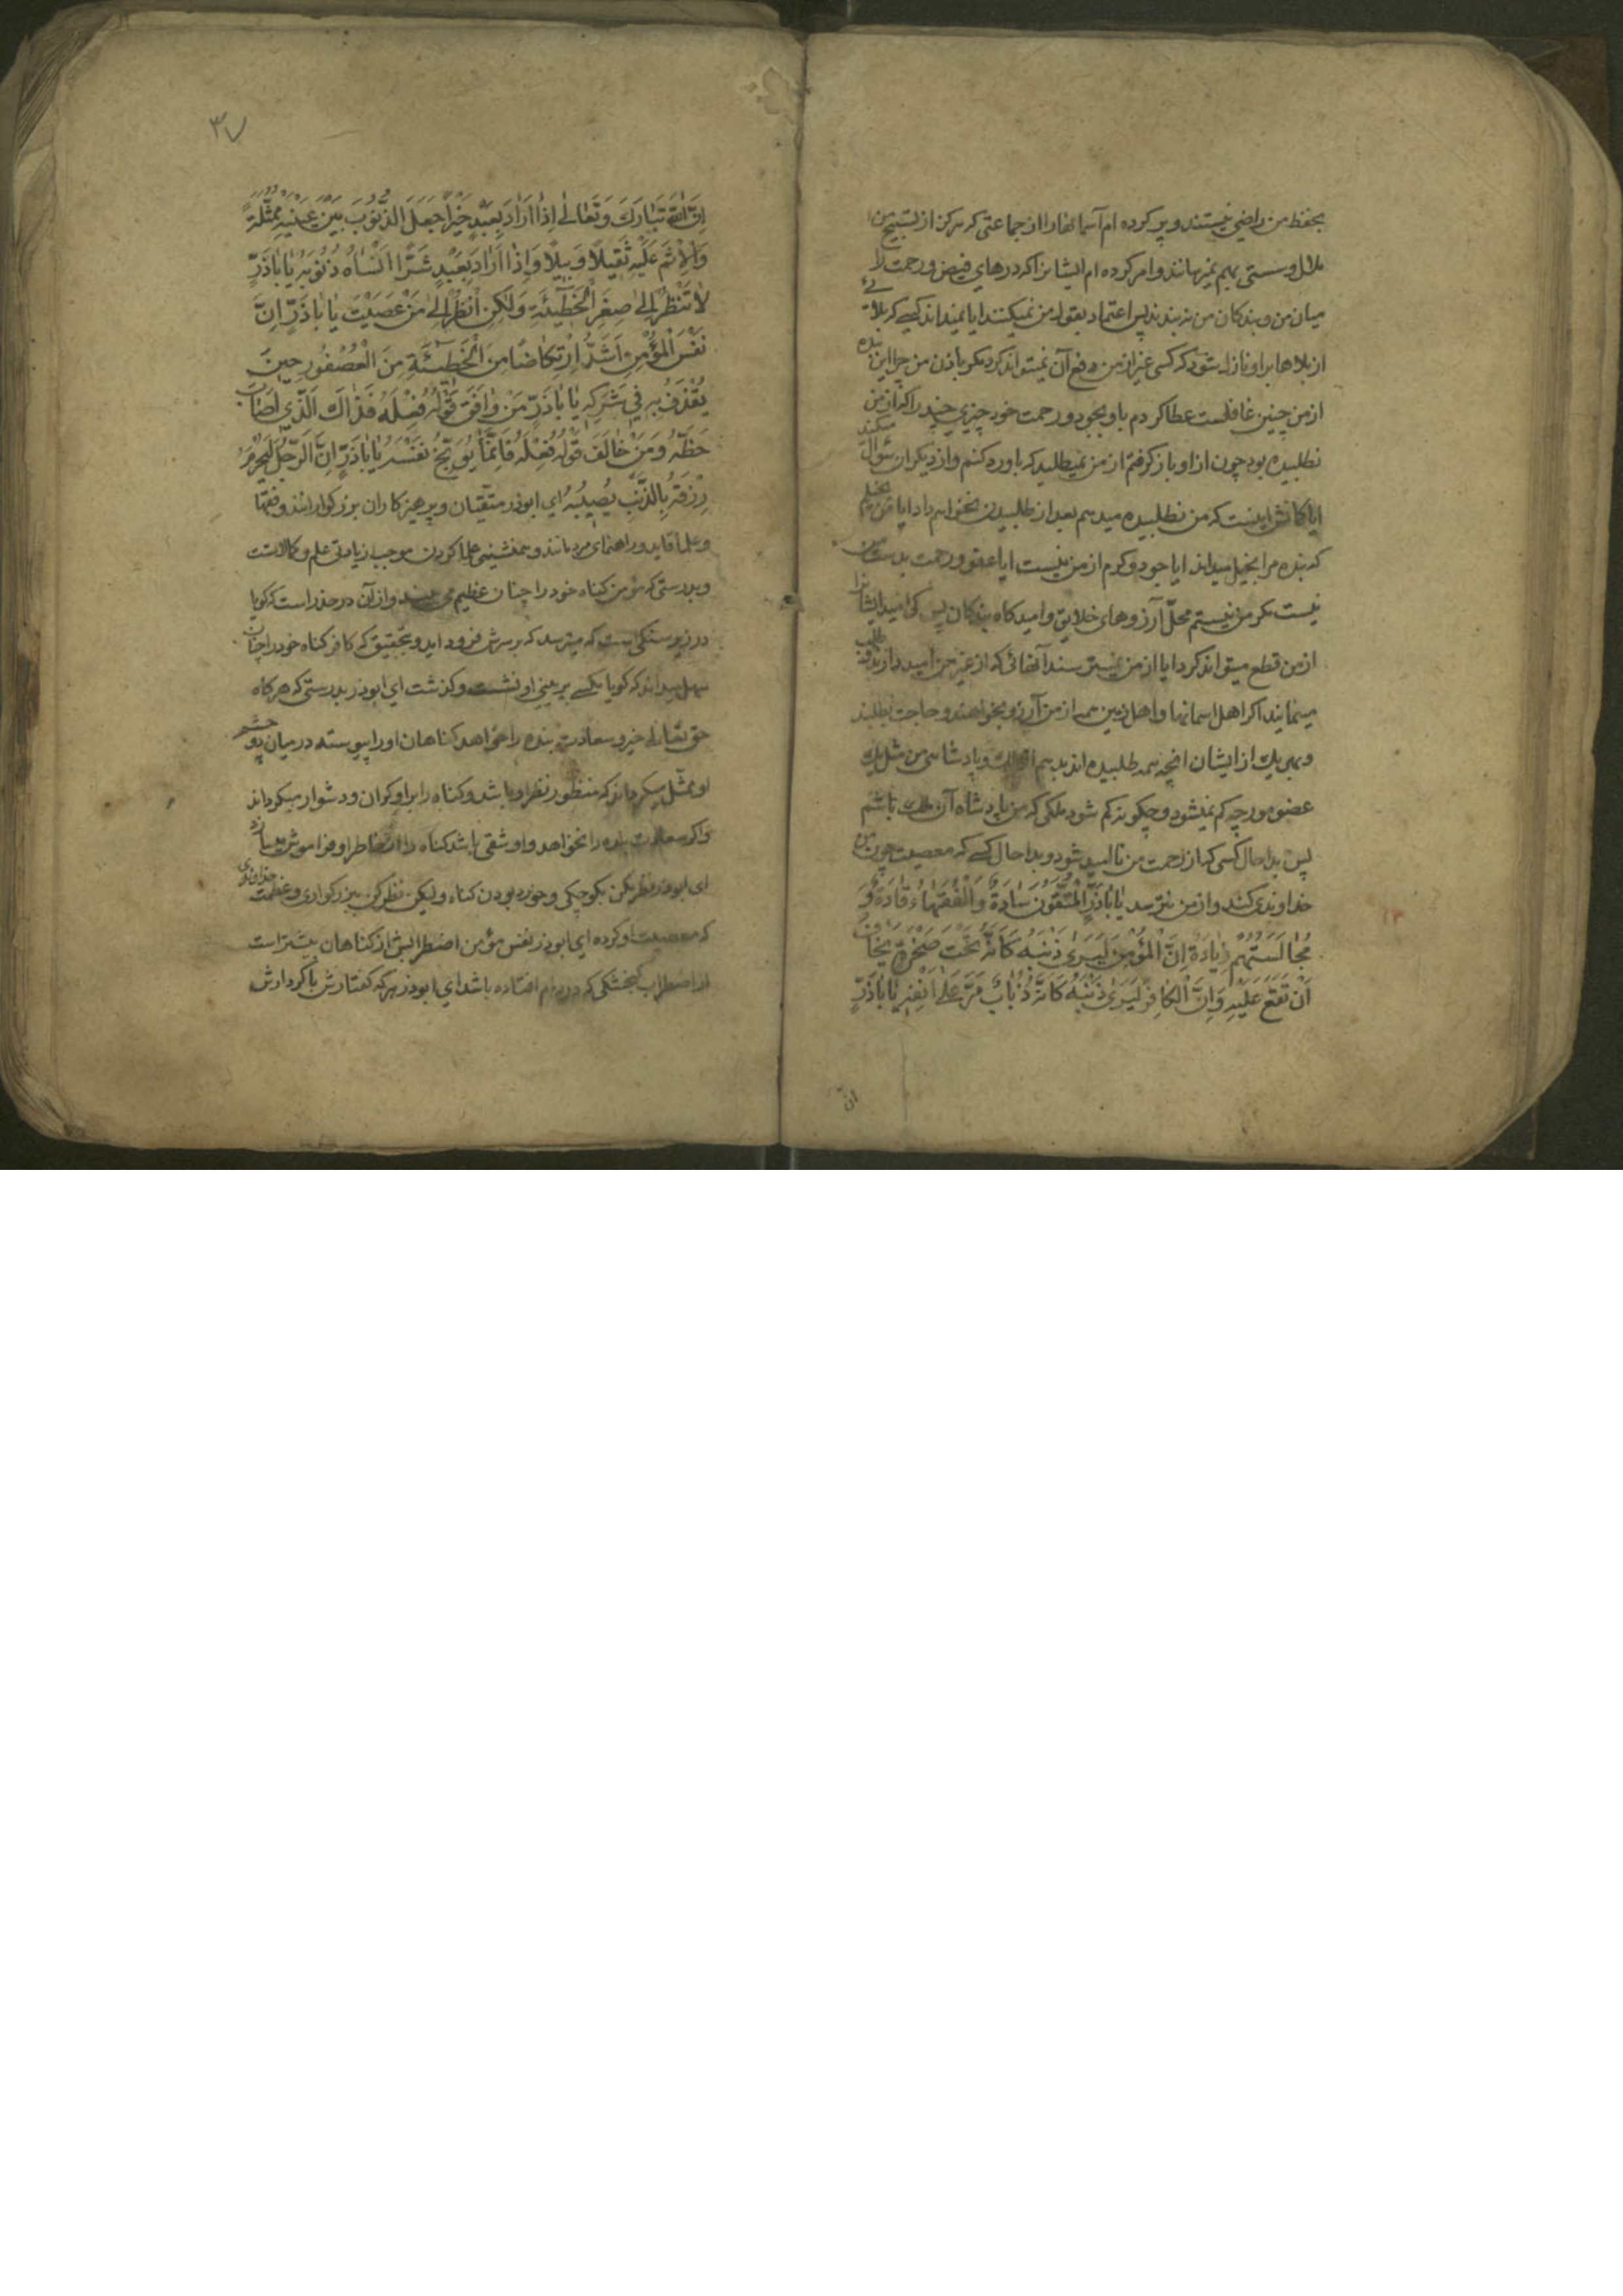 بحفظ من راضی نیستند و پر کرده ام آسمانها را از جماعتی که هرگز از تسبیح من
ملال و سستی بهم نمیرسانند و امر کرده ام ایشانرا که درهای فیض و رحمت را
میان من و بندکان من نه بندند پس اعتماد بقول من نمیکنند ایا نمیداند کسی که بلائی
از بلاها براو نازل شود که کسی غیر از من دفع آن نمیتواند کرد مکر باذن من چرا این بنده
از من چنین غافلست عطا کردم باو بجود و رحمت خود چیزی چند را که از من
نطلبیده بود چون از او باز کرفتم از من نمیطلبد که باو رد کنم و از دیکران سؤال میکند
ایا کمانش اینست که من نطلبیده میدهم بعد از طلبیدن نخواهم داد ایا من بخیلم
که بنده مرا بخیل میداند ایا جود و کرم از من نیست ایا عفو و رحمت بدست من
نیست مکر من نیستم محلّ آرزوهای خلایق و امیدکاه بندکان پس کی امید ایشانرا
از من قطع میتواند کرد ایا از من نمیترسند آنهائی که از غیر من امید دارند و طلب
مینمایند اکر اهل اسمانها و اهل زمین همه از من آرزو بخواهند و حاجت بطلبند
و بهر یک از ایشان انچه همه طلبیده اند بدهم از ملک و پادشاهی من مثل یک
عضو مورچه کم نمیشود و چکونه کم شود ملکی که من پادشاه آن ملک باشم
پس بدا حال کسی که از رحمت من ناامید شود و بدا حال کسی که معصیت چون من
خداوندی کند و از من نترسد یٰا اَبٰاذَرٍّ اَلْمُتَّقُونَ سٰادَةٌ وَ الْفُقَهٰاءُ قٰادَةٌ وَ
مُجٰالَسَتُهُمْ زِیٰادَةٌ اِنَّ الْمُؤْمِنَ لَیَریٰ ذَنْبَهُ کَاَنَّهُ تَحْتَ صَخْرَةٍ یَخٰافُ
اَنْ تَقَعَ عَلَیْهِ وَ اِنَّ الْکٰافِرَ لَیَریٰ ذَنْبَهُ کَاَنَّهُ ذُبٰابٌ مَرَّ عَلیٰ اَنْفِهِ یٰا اَبٰاذَرٍّ
انّ
٣٧
اِنَّ اللّٰهَ تَبٰارَکَ وَ تَعٰالیٰ اِذٰا اَرٰادَ بِعَبْدٍ خَیْرًا جَعَلَ الذُّنُوبَ بَیْنَ عَیْنَیْهِ مُمَثَّلَةً
وَ الْاِثْمَ عَلَیْهِ ثَقیلاً وَبیلاً وَ اِذٰا اَرٰادَ بِعَبْدٍ شَرًّا اَنْسٰاهُ ذُنُوبَهُ یٰا اَبٰاذَرٍّ
لاٰ تَنْظُرْ اِلیٰ صِغَرِ الْخَطٓیئَةِ وَ لٰکِنِ انْظُرْ اِلیٰ مَنْ عَصَیْتَ یٰا اَبٰاذَرٍّ اِنَّ
نَفْسَ الْمُؤْمِنِ اَشَدُّ ارْتِکٰاضًا مِنَ الْخَطٓیئَةِ مِنَ الْعُصْفُورِ حینَ
یُقْذَفُ بِهِ فی شَرَکِهِ یٰا اَبٰاذَرٍّ مَنْ وٰافَقَ قَوْلُهُ فِعْلَهُ فَذٰاکَ الَّذی اَصٰابَ
حَظَّهُ وَ مَنْ خٰالَفَ قَوْلُهُ فِعْلَهُ فَاِنَّمٰا یُوَبِّخُ نَفْسَهُ یٰا اَبٰاذَرٍّ اِنَّ الرَّجُلَ لَیُحْرَمُ
رِزْقَهُ بِالذَّنْبِ یُصیبُهُ ای ابوذر متّقیان و پرهیزکاران بزرکوارانند و فقها
و علما قاید و راهنمای مردمانند و همنشینی علما کردن موجب زیادتی علم و کمالاتست
و بدرستی که مؤمن کناه خود را چنان عظیم می بیند و از آن در حذر است که کویا
در زیر سنکی است که میترسد که برسرش فرود اید و بتحقیق که کافر کناه خود را چنان
سهل میداند که کویا مکسی بر بینی او نشست و کذشت ای ابوذر بدرستی که هرکاه
حق تعالی خیر و سعادت بنده را خواهد کناهان او را پیوسته در میان دو چشم
او ممثّل میکرداند که منظور نظر او باشد و کناه را براو کران و دشوار میکرداند
و اکر سعادت بنده را نخواهد و او شقی باشد کناه را از خاطر او فراموش میسازد
ای ابوذر نظر مکن بکوچکی و خورد بودن کناه و لیکن نظر کن ببزرکواری و عظمت خداوندی
که معصیت او کرده ای ابوذر نفس مؤمن اضطرابش از کناهان بیشتر است
از اضطراب کنجشکی که در دام افتاده باشد ای ابوذر هرکه کفتارش با کردارش